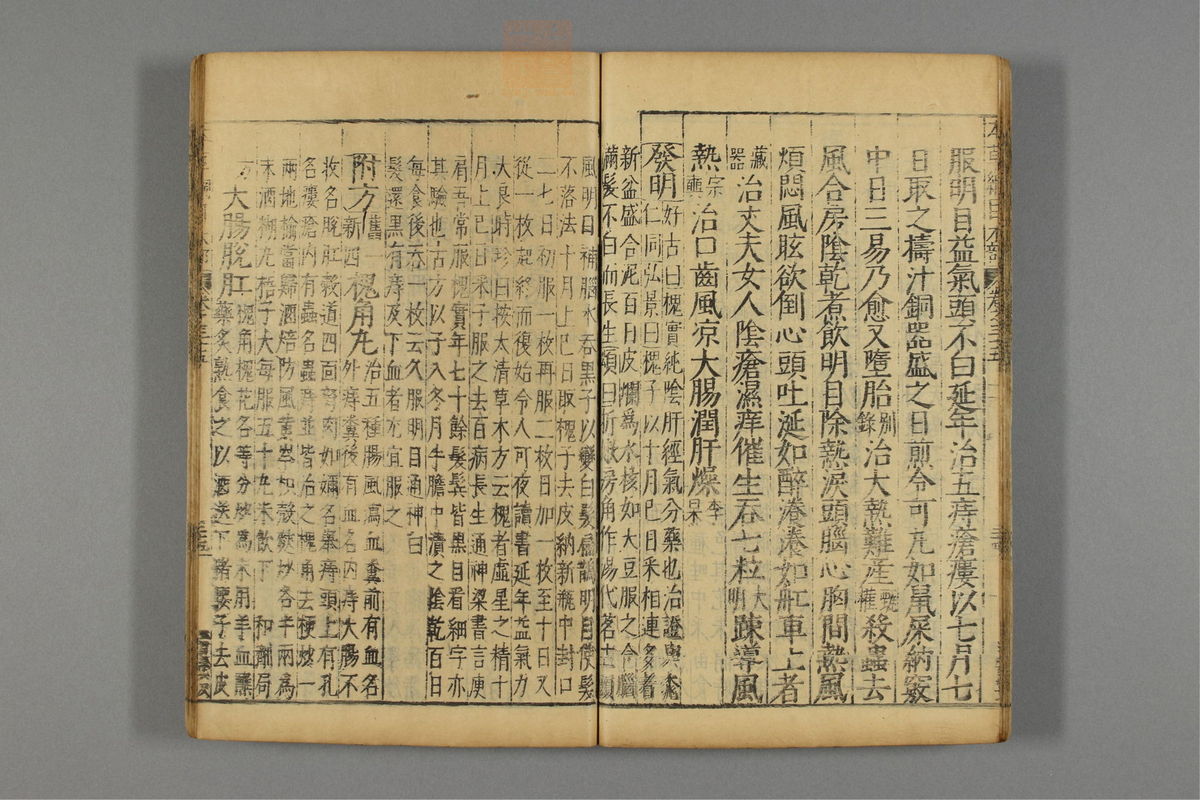 服明目益氣頭不白延年治五痔瘡瘻以七月七
日取之擣汁銅器盛之日煎令可丸如鼠屎納竅
中日三易乃愈又墮胎別錄治大熱難産甄權殺蟲去
風合房陰乾煮飲明目除熱淚頭腦心胸間熱風
煩悶風眩欲倒心頭吐涎如醉漾漾如舡車上者
藏器治丈夫女人陰瘡濕痒催生吞七粒大明踈導風
熱宗奭治口齒風凉大腸潤肝燥李杲
發明好古曰槐實純陰肝經氣分藥也治證與桑
仁同弘景曰槐子以十月巳日采相連多者
新盆盛合泥百日皮爛爲水核如大豆服之令腦
滿髮不白而長生頌曰折嫩房角作湯代茗主頭
風明目補腦水吞黑子以變白髮扁鵲明目使髮
不落法十月上巳日取槐子去皮納新瓶中封口
二七日初服一枚再服二枚日加一枚至十日又
從一枚起終而復始令人可夜讀書延年益氣力
大良時珍曰按太清草木方云槐者虛星之精十
月上巳日采子服之去百病長生通神梁書言庾
肩吾常服槐實年七十餘髮鬢皆黑目看細字亦
其驗也古方以子入冬月牛膽中漬之陰乾百日
每食後吞一枚云久服明目通神白
髮還黑有痔及下血者尤宜服之
附方舊一新四槐角丸治五種腸風瀉血糞前有血名
外痔糞後有血名内痔大腸不
收名脫肛穀道四面弩肉如嬭名舉痔頭上有孔
名瘻瘡内有蟲名蟲痔並皆治之槐角去梗炒一
兩地榆當歸酒焙防風黄芩枳殼麩炒各半兩爲
末酒糊丸梧子大每服五十丸米飲下和劑局
方大腸脫肛槐角槐花各等分炒爲末用羊血蘸
藥炙熟食之以酒送下猪腰子去皮